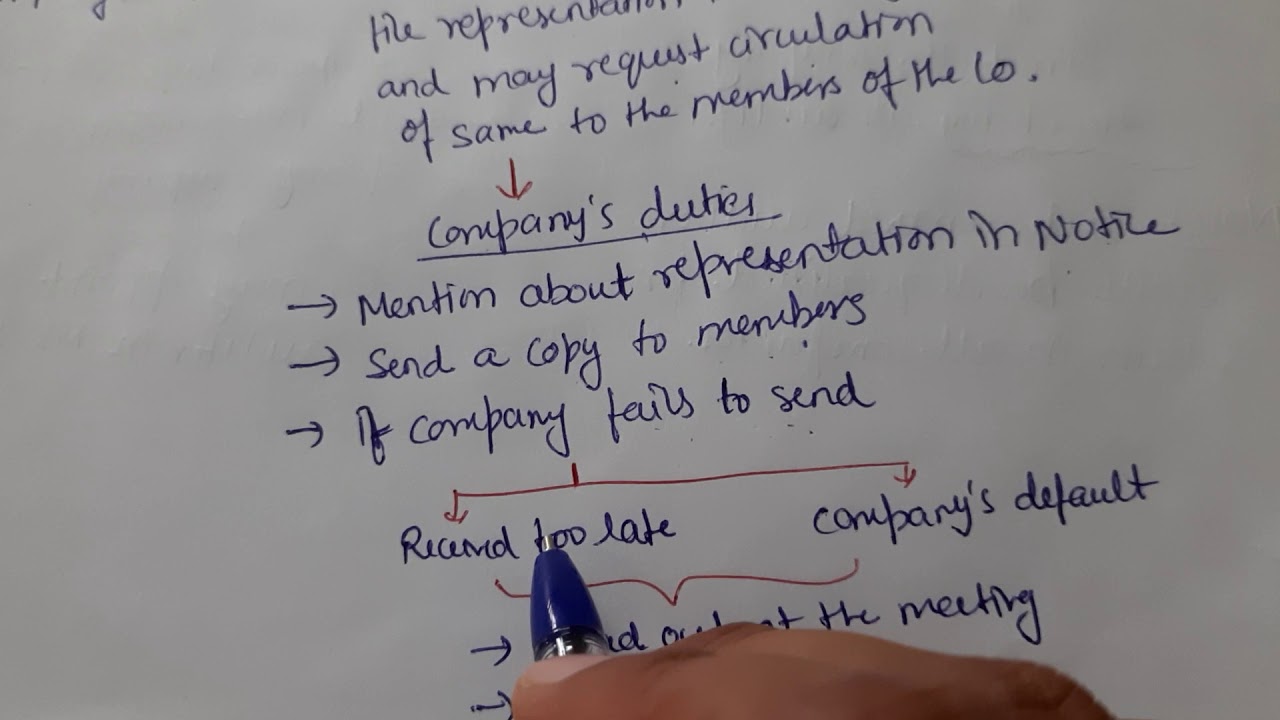 file representation
and may request circulation
of same to the members of the Co.
Company's duties
→ Mention about representation in Notice
→ Send a copy to members
→ If company fails to send
Received too late
Company's default
→ out at the meeting
→